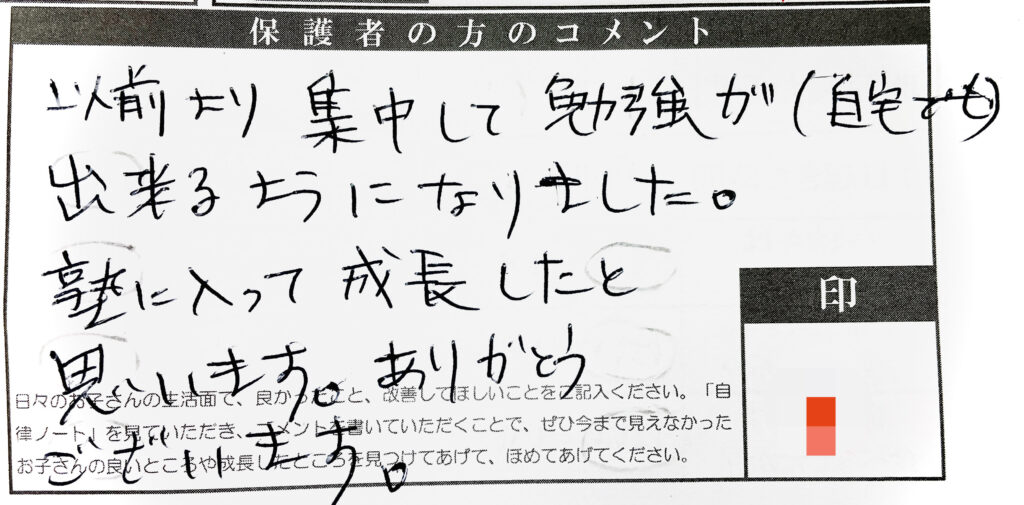 保護者の方のコメント
以前より集中して勉強が(自宅でも)
出来るようになりました。
塾に入って成長したと
思います。ありがとう
ございます。
印
日々のお子さんの生活面で、良かったこと、改善してほしいことをご記入ください。「自
律ノート」を見ていただき、コメントを書いていただくことで、ぜひ今まで見えなかった
お子さんの良いところや成長したところを見つけてあげて、ほめてあげてください。